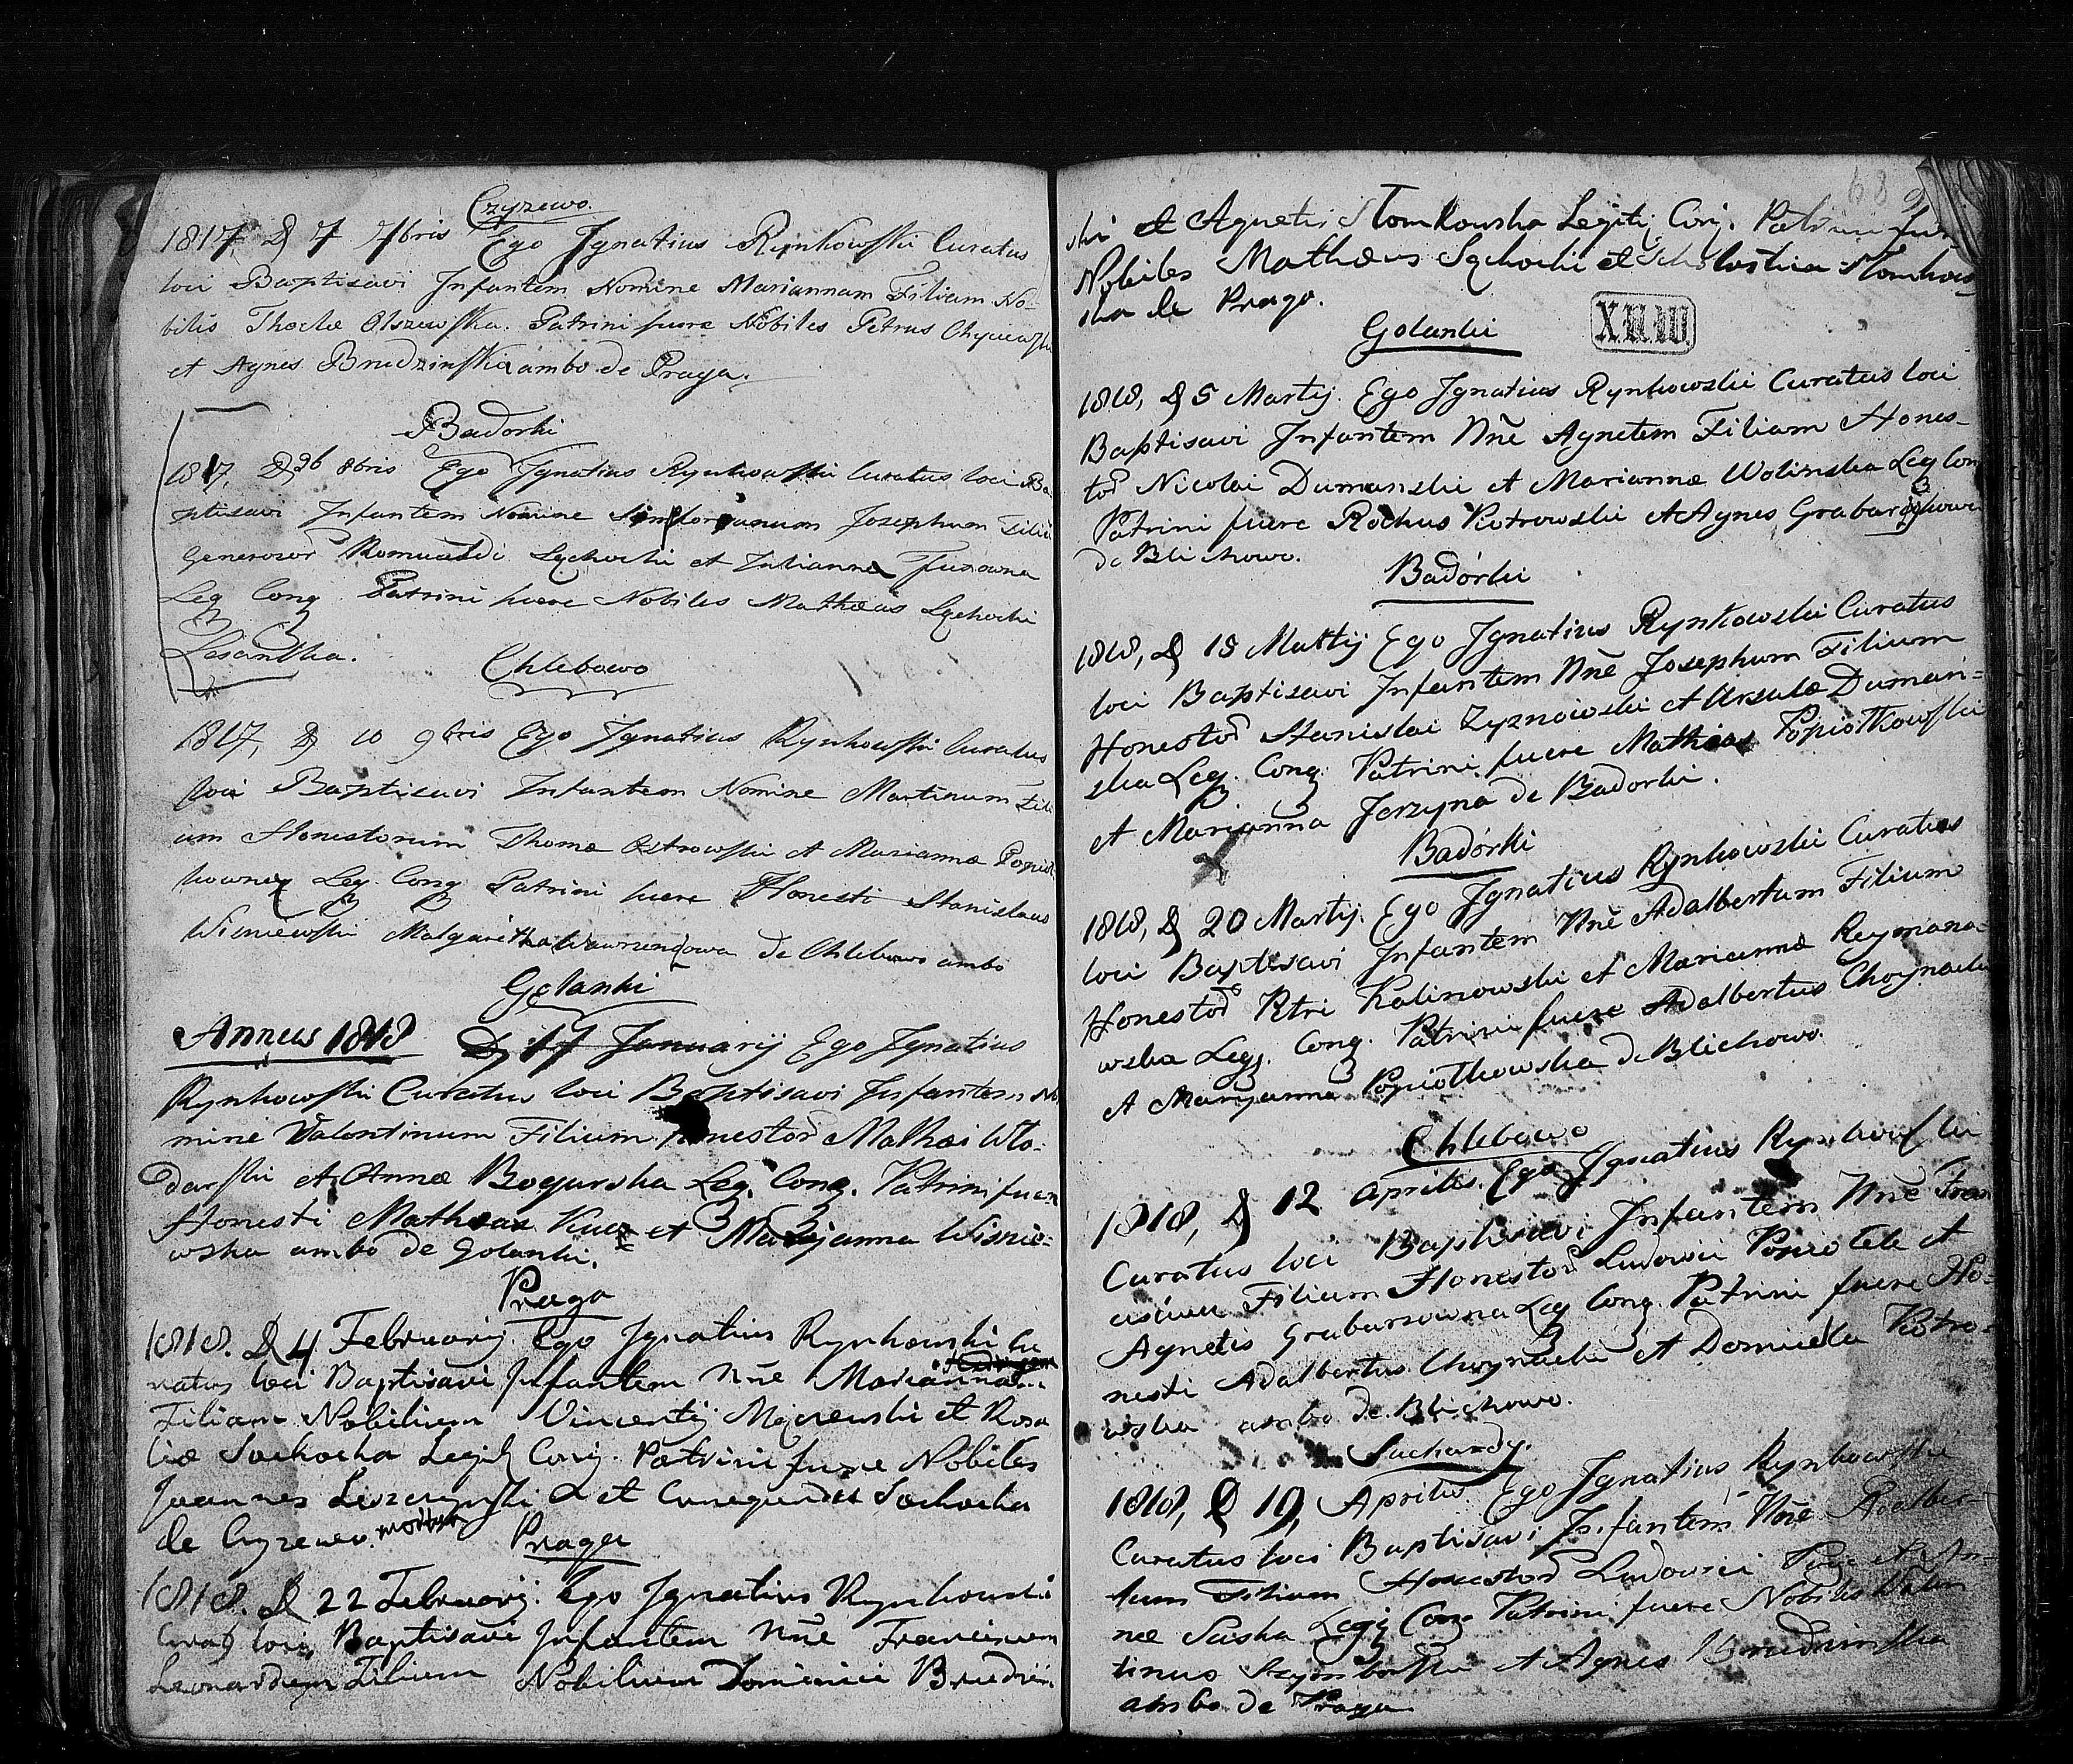 Czyzewo.
1817, D 7 7bris Ego Jgnatius Rynkowski Curatus
loci Baptisavi Jnfantem Nomine Mariannam Filiam No-
bilis Theclæ Olszewska. Patrini fuere Nobiles Petrus
et Agnes Brudzinska ambo de Praga.
Badorki
1817, D 26 8bris Ego Jgnatius Rynkowski Curatus loci Ba
ptisavi Jnfantem Nomine Josephum Filiu
Generosor Romualdi Sęchocki et Julianna
Leg Conq Patrini fuere Nobiles Mathæus Sęchocki
Chlebowo
1817, D 10 9bris Ego Jgnatius Rynkowski Curatus
loci Baptisavi Infantem Nomine Martinum Fili
um Honestorum Thomæ Ostrowski et Mariannæ
Leg. Conq Patrini fuere Honesti Stanislaus
Wisniewski Malgaretha de Chlebowo ambo
Golanki
Annus 1818 D 17 Januarij Ego Jgnatius
Rynkowski Curatus loci Baptisavi Jnfantem No
mine Valentinum Filium Honestor Mathæi Wlo-
darski et Annæ Bogurska Leg. Conq. Patrini fuere
Honesti Mathæas et Maryjanna Wisnie-
wska ambo de Golanki.
Praga
1818. D 4 Februarij Ego Jgnatius Rynkowski Cu
ratus loci Baptisavi Jnfantem Nne Mariannam
Filiam Nobilium Vincentij Majewski et Rosa
liæ Sochocka Legit Conj. Patrini fuere Nobiles
Joannes Leszczynski et Cunegunda Sochocka
de Czyzewo.
Praga
1818. D 22 Februarij. Ego Jgnatius Rynkowski
Curat loci, Baptisavi Jnfantem Nne Franciscum
Leonardum Filium Nobilium Dominici Brudzin
68
ski et Agnetis Slomkowska Legity Conj. Patrini fuer
Nobiles Mathæus Sęchocki et Scholastica Slomkow
ska de Praga.
Golanki
XII.III.
1818, D 5 Martij. Ego Jgnatius Rynkowski Curatus loci
Baptisavi Jnfantem Nne Agnetem Filiam Hones-
tor Nicolai Dumanski et Mariannæ Wolinska Leg Conq
Patrini fuere Rochus Piotrowski et Agnes
de Blichowo.
Badórki
1818, D 18 Martij Ego Jgnatius Rynkowski Curatus
loci Baptisavi Jnfantem Nne Josephum Filium
Honestor Stanislai Zyznowski et Ursulæ Duman-
ska Leg. Conq. Patrini fuere Mathias Popiolkowski
et Marianna Jerzyna de Badorki.
Badórki
1818, D 20 Martij. Ego Jgnatius Rynkowski Curatus
loci Baptisavi Jnfantem Nne Adalbertum Filium
Honestor Petri Kalinowski et Mariannæ Reymano-
wska Legj. Conq. Patrini fuere Adalbertus Choynacki
et Maryanna Popiolkowska de Blichowo.
Chlebowo
1818, D 12 Aprilis. Ego Jgnatius Rynkowski
Curatus loci Baptisavi Jnfantem Nne Fran
ciscum Filium Honestor Ludovici et
Agnetis Grabarzowna Leg Conq. Patrini fuere Ho-
nesti Adalbertus Choynacki et Domicella Piotro-
wska ambo de Blichowo.
Suchardy.
1818, D 19, Aprilis Ego Jgnatius Rynkowski
Curatus loci Baptisavi Jnfantem Nne Adalber-
tum Filium Honestor Ludovici et An-
næ Suska Legj Conq Patrini fuere Nobiles Valen
tinus Szymborski et Agnes Brudzinska
ambo de Praga